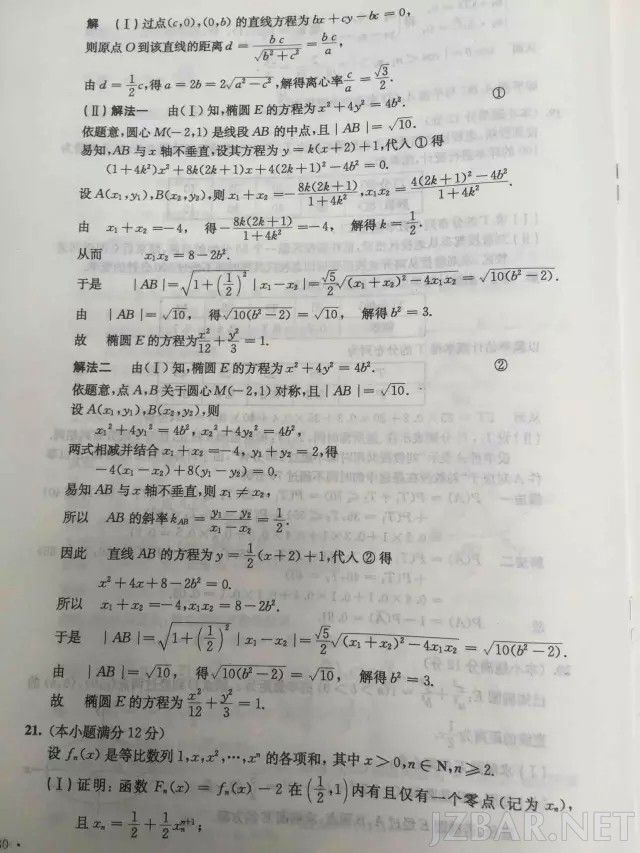 解 (Ⅰ)过点(c,0),(0,b)的直线方程为bx+cy-bc=0,
则原点O到该直线的距离d=\frac{bc}{\sqrt{b²+c²}}=\frac{bc}{a},
由d=\frac{1}{2}c,得a=2b=2\sqrt{a²-c²},解得离心率\frac{c}{a}=\frac{\sqrt{3}}{2}.
(Ⅱ)解法一 由(Ⅰ)知,椭圆E的方程为x²+4y²=4b². ①
依题意,圆心M(-2,1)是线段AB的中点,且|AB|=\sqrt{10}.
易知,AB与x轴不垂直,设其方程为y=k(x+2)+1,代入①得
(1+4k²)x²+8k(2k+1)x+4(2k+1)²-4b²=0.
设A(x₁,y₁),B(x₂,y₂),则x₁+x₂=-\frac{8k(2k+1)}{1+4k²},x₁x₂=\frac{4(2k+1)²-4b²}{1+4k²}.
由 x₁+x₂=-4, 得-\frac{8k(2k+1)}{1+4k²}=-4, 解得k=\frac{1}{2}.
从而 x₁x₂=8-2b².
于是 |AB|=\sqrt{1+(\frac{1}{2})²}|x₁-x₂|=\frac{\sqrt{5}}{2}\sqrt{(x₁+x₂)²-4x₁x₂}=\sqrt{10(b²-2)}.
由 |AB|=\sqrt{10}, 得\sqrt{10(b²-2)}=\sqrt{10}, 解得b²=3.
故 椭圆E的方程为\frac{x²}{12}+\frac{y²}{3}=1.
解法二 由(Ⅰ)知,椭圆E的方程为x²+4y²=4b². ②
依题意,点A,B关于圆心M(-2,1)对称,且|AB|=\sqrt{10}.
设A(x₁,y₁),B(x₂,y₂),则
x₁²+4y₁²=4b²,x₂²+4y₂²=4b²,
两式相减并结合x₁+x₂=-4,y₁+y₂=2,得
-4(x₁-x₂)+8(y₁-y₂)=0.
易知AB与x轴不垂直,则x₁≠x₂,
所以 AB的斜率k_{AB}=\frac{y₁-y₂}{x₁-x₂}=\frac{1}{2}.
因此 直线AB的方程为y=\frac{1}{2}(x+2)+1,代入②得
x²+4x+8-2b²=0.
所以 x₁+x₂=-4,x₁x₂=8-2b².
于是 |AB|=\sqrt{1+(\frac{1}{2})²}|x₁-x₂|=\frac{\sqrt{5}}{2}\sqrt{(x₁+x₂)²-4x₁x₂}=\sqrt{10(b²-2)}.
由 |AB|=\sqrt{10}, 得\sqrt{10(b²-2)}=\sqrt{10}, 解得b²=3.
故 椭圆E的方程为\frac{x²}{12}+\frac{y²}{3}=1.
21.(本小题满分12分)
设fₙ(x)是等比数列1,x,x²,…,xⁿ的各项和,其中x>0,n∈N,n≥2.
(Ⅰ)证明:函数Fₙ(x)=fₙ(x)-2在(\frac{1}{2},1)内有且仅有一个零点(记为xₙ),
且xₙ=\frac{1}{2}+\frac{1}{2}x_n^{n+1};
JZBAR.NET